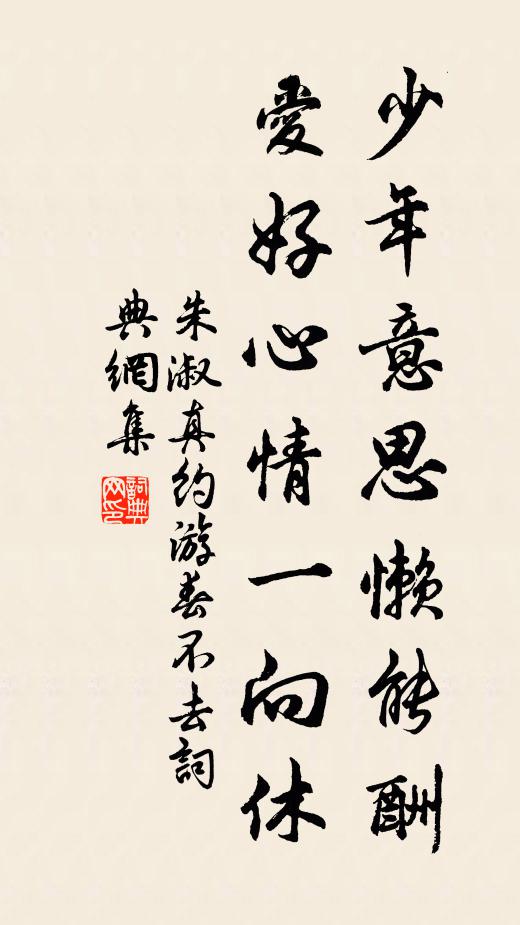 少年意思懒能酬
愛好心情一向休
朱淑真约游春不去詞
典網集
詞典
网印